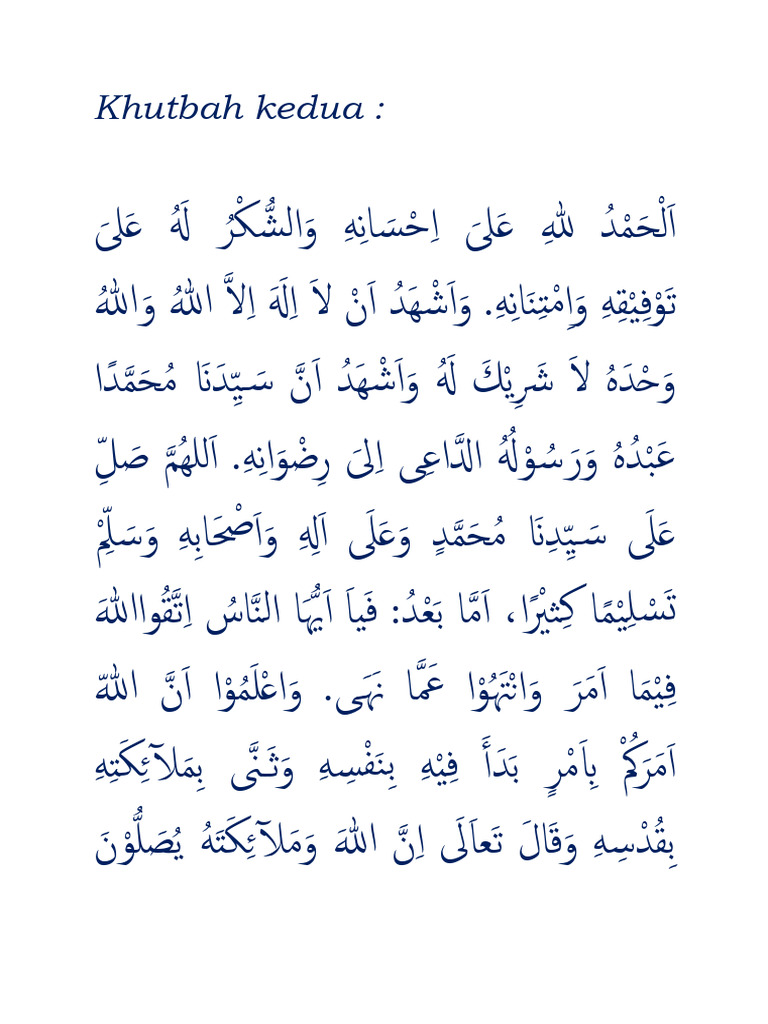 Khutbah kedua :
اَلْحَمْدُ للهِ عَلىَ اِحْسَانِهِ وَالشُّكْرُ لَهُ عَلىَ
تَوْفِيْقِهِ وَاِمْتِنَانِهِ. وَاَشْهَدُ اَنْ لاَ اِلَهَ اِلاَّ اللهُ وَاللهُ
وَحْدَهُ لاَ شَرِيْكَ لَهُ وَاَشْهَدُ اَنَّ سَيِّدَنَا مُحَمَّدًا
عَبْدُهُ وَرَسُوْلُهُ الدَّاعِى اِلىَ رِضْوَانِهِ. اَللهُمَّ صَلِّ
عَلَى سَيِّدِنَا مُحَمَّدٍ وَعَلَى اَلِهِ وَاَصْحَابِهِ وَسَلِّمْ
تَسْلِيْمًا كِثيْرًا، اَمَّا بَعْدُ: فَياَ اَيُّهَا النَّاسُ اِتَّقُوااللهَ
فِيْمَا اَمَرَ وَانْتَهُوْا عَمَّا نَهَى. وَاعْلَمُوْا اَنَّ اللهَّ
اَمَرَكُمْ بِاَمْرٍ بَدَأَ فِيْهِ بِنَفْسِهِ وَثَـنَّى بِمَلآئِكَتِهِ
بِقُدْسِهِ وَقَالَ تَعاَلَى اِنَّ اللهَ وَمَلآئِكَتَهُ يُصَلُّوْنَ